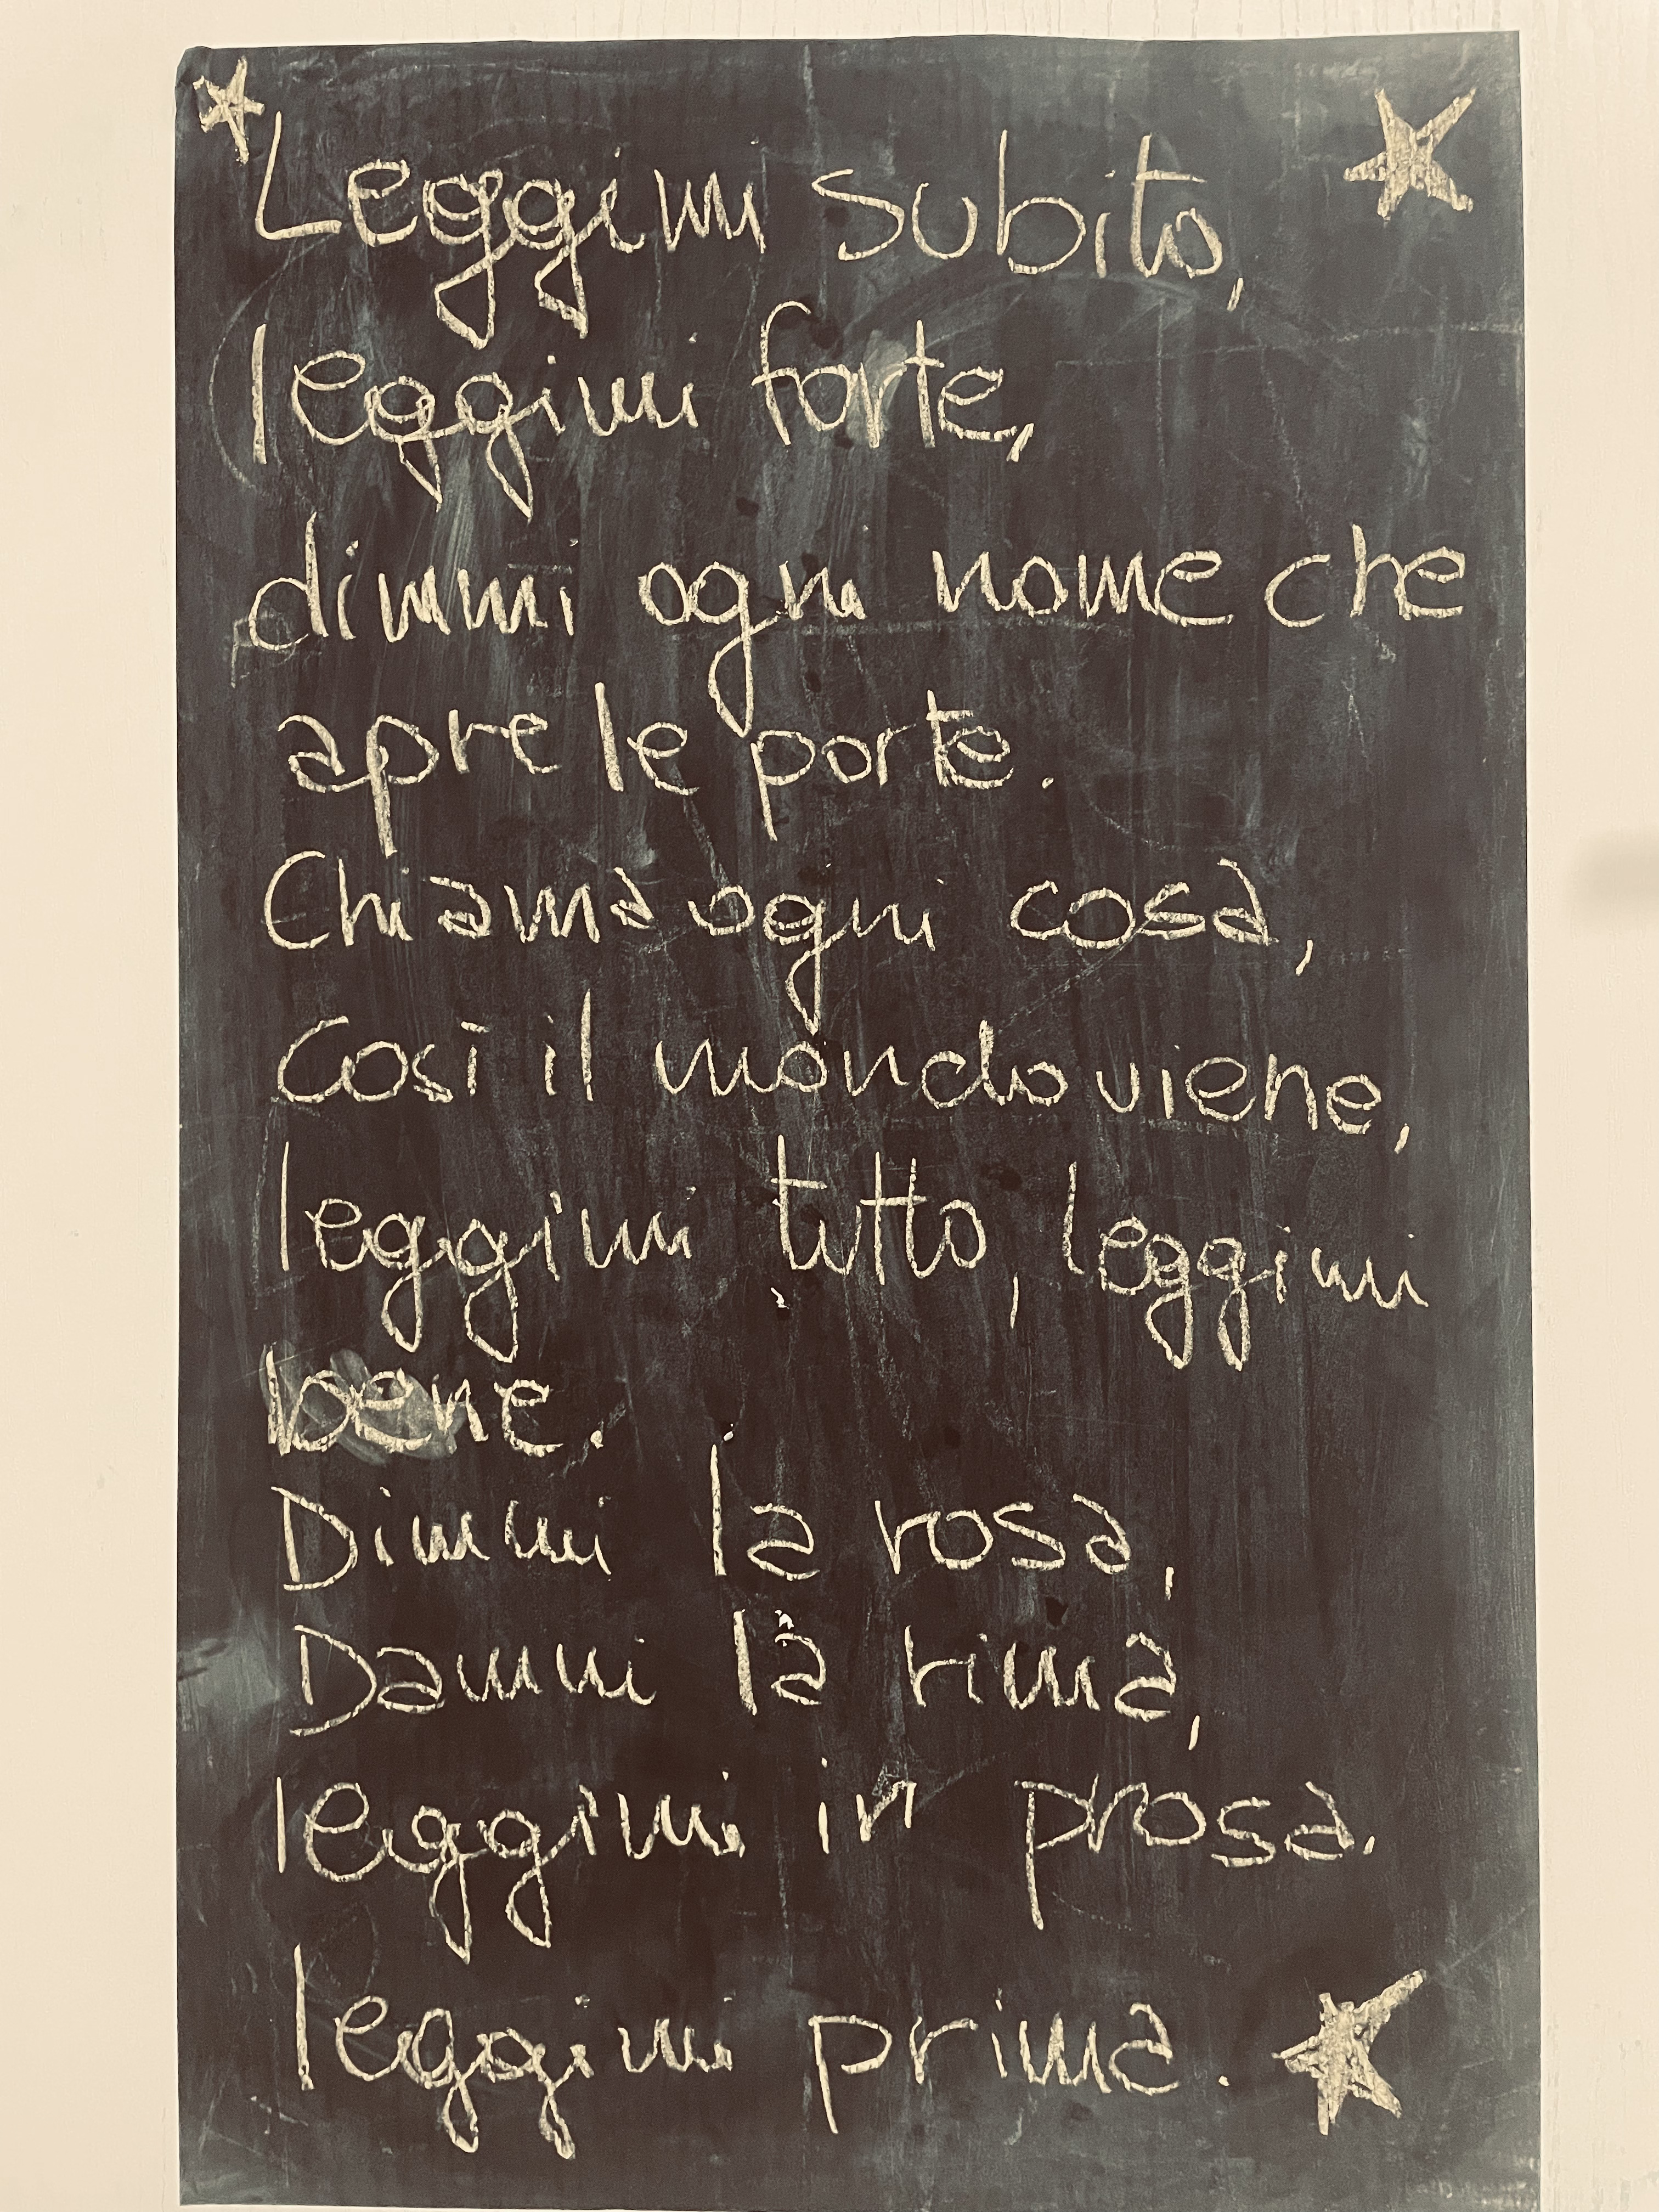 Leggimi subito,
leggimi forte,
dimmi ogni nome che
apre le porte.
Chiama ogni cosa,
così il mondo viene,
leggimi tutto, leggimi
bene.
Dimmi la rosa,
Dammi la rima,
leggimi in prosa.
leggimi prima.